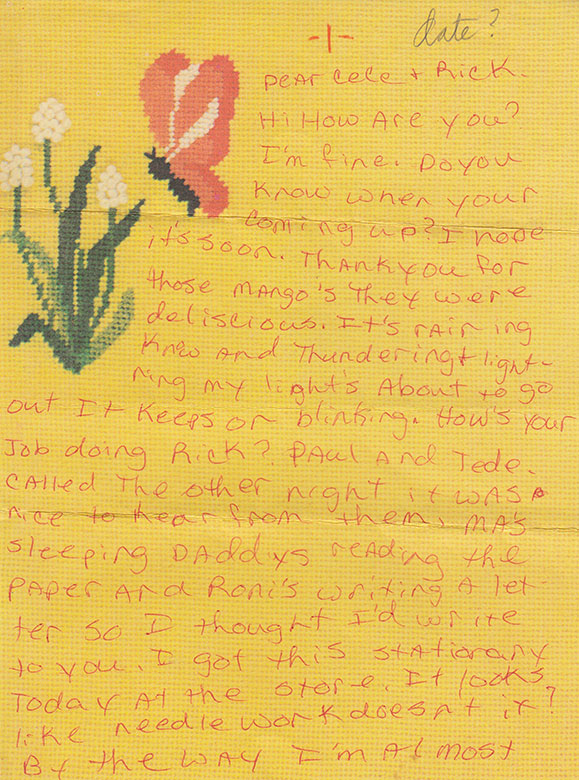 -1-
date?
Dear Cele + Rick.
Hi How Are you?
I'm fine. Do you
know when your
coming up? I hope
it's soon. Thankyou for
those mango's They were
deliscious. It's rain ing
Know And Thundering + light-
ning my light's About to go
out It keeps on blinking. How's your
Job doing Rick? Paul And Tede.
Called The other night it was
nice to hear from them, MA's
sleeping Daddys reading the
paper And Roni's writing A let-
ter so I thought I'd write
to you. I got this stationary
Today At the store. It looks
like needle work doesn't it?
By the way I'm Almost